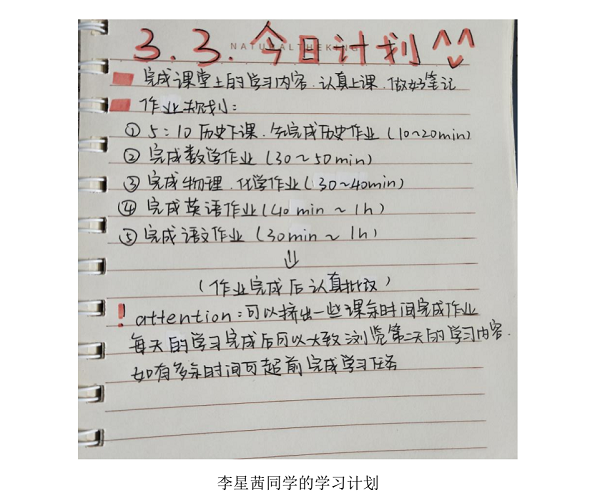 3.3.今日计划^^
NATURALTHEKING
完成课堂上的学习内容.认真上课.做好笔记
作业规划:
① 5:10历史下课.先完成历史作业(10~20min)
② 完成数学作业(30~50min)
③ 完成物理.化学作业(30~40min)
④ 完成英语作业(40min~1h)
⑤ 完成语文作业(30min~1h)
⇓
(作业完成后认真批改)
! attention:可以挤出一些课余时间完成作业
每天的学习完成后可以大致浏览第二天的学习内容.
如有多余时间可超前完成学习任务
李星茜同学的学习计划